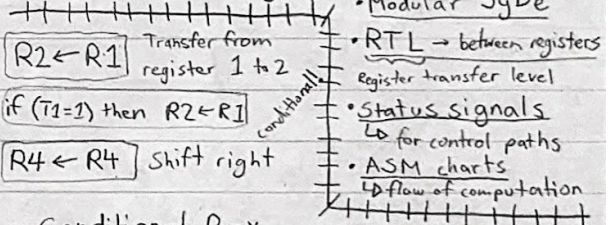 R2 ← R1 Transfer from
register 1 to 2
if (T1=1) then R2 ← R1
conditional!
R4 ← R4 Shift right
• Modular
• RTL → between registers
Register transfer level
• Status signals
↳ for control paths
• ASM charts
↳ flow of computation